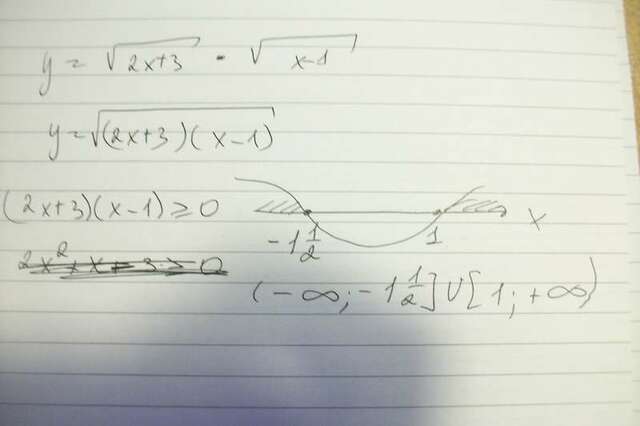 y = √2x+3 · √x-1
y = √(2x+3)(x-1)
(2x+3)(x-1) ≥ 0
x
-1 1/2 1
2x² + x + 3 ≥ 0
(-∞; -1 1/2] U [1; +∞)